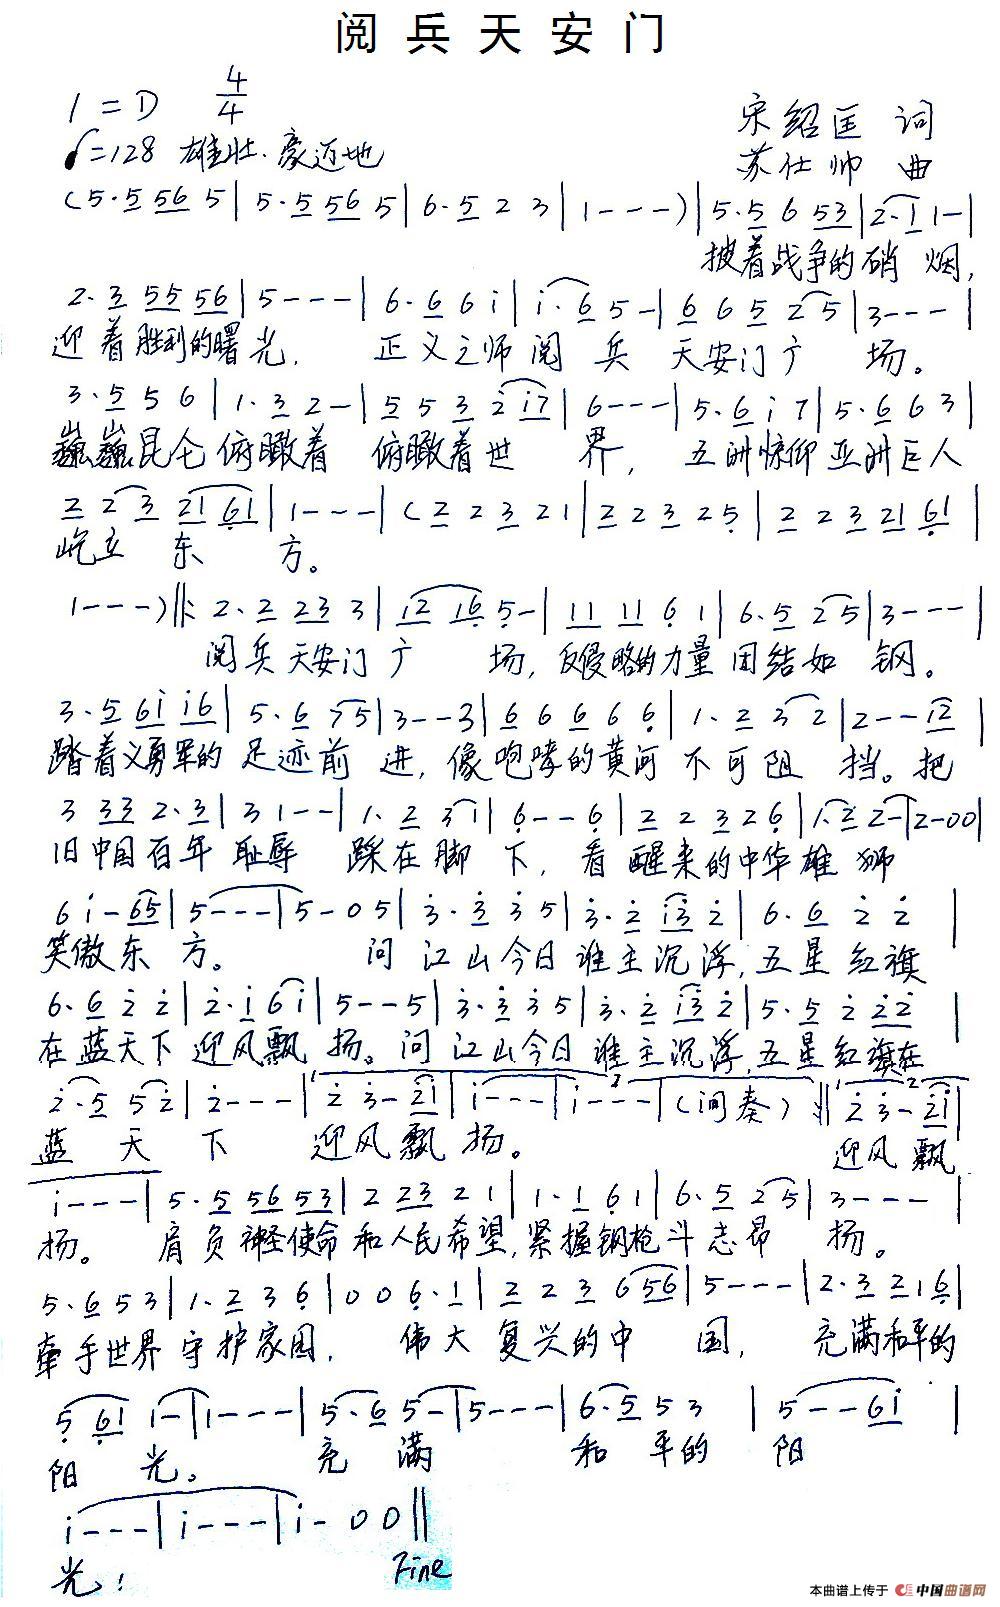 阅兵天安门
1=D 4/4
宋绍匡 词
♩=128 雄壮.豪迈地
苏仕帅 曲
(5.5 56 5|5.5 56 5|6.5 2 3|1---)|5.5 6 53|2.1 1-|
披着战争的硝烟,
2.3 55 56|5---|6.6 6 i|i.6 5-|6 6 5 2 5|3---|
迎着胜利的曙光, 正义之师阅兵天安门广场。
3.5 5 6|1.3 2-|5 5 3 2 i7|6---|5.6 i 7|5.6 6 3|
巍巍昆仑俯瞰着 俯瞰着世界, 五洲惊仰亚洲巨人
2 2 3 21 61|1---|(2 2 3 2 1|2 2 3 2 5|2 2 3 21 61|
屹立东方。
1---)‖:2.2 23 3|12 16 5-|11 11 6 1|6.5 2 5|3---|
阅兵天安门广场, 反侵略的力量团结如钢。
3.5 6i i6|5.6 7 5|3--3|6 6 6 6 6|1.2 3 2|2--12|
踏着义勇军的足迹前进, 像咆哮的黄河不可阻挡。把
3 33 2.3|3 1--|1.2 3 1|6--6|2 2 3 2 6|1.2 2-|2-00|
旧中国百年耻辱 踩在脚下, 看醒来的中华雄狮
6 i-65|5---|5-05|3.3 3 5|3.2 i3 2|6.6 2 2|
笑傲东方。 问江山今日谁主沉浮,五星红旗
6.6 2 2|2.i 6 i|5--5|3.3 3 5|3.2 i3 2|5.5 2 22|
在蓝天下迎风飘扬。问江山今日谁主沉浮,五星红旗在
2.5 5 2|2---|2 3-2i|i---|i---|(间奏):‖2 3-2i|
蓝天下 迎风飘扬。 迎风飘
i---|5.5 56 53|2 23 2 1|1.1 6 1|6.5 2 5|3---|
扬。 肩负神圣使命和人民希望,紧握钢枪斗志昂扬。
5.6 5 3|1.2 3 6|0 0 6.1|2 2 3 6 56|5---|2.3 2 1 6|
牵手世界守护家园, 伟大复兴的中国, 充满和平的
5 61 1-|1---|5.6 5-|5---|6.5 5 3|5--6i|
阳光。 充满 和平的阳
i---|i---|i-00‖
光!
Fine
本曲谱上传于 中国曲谱网